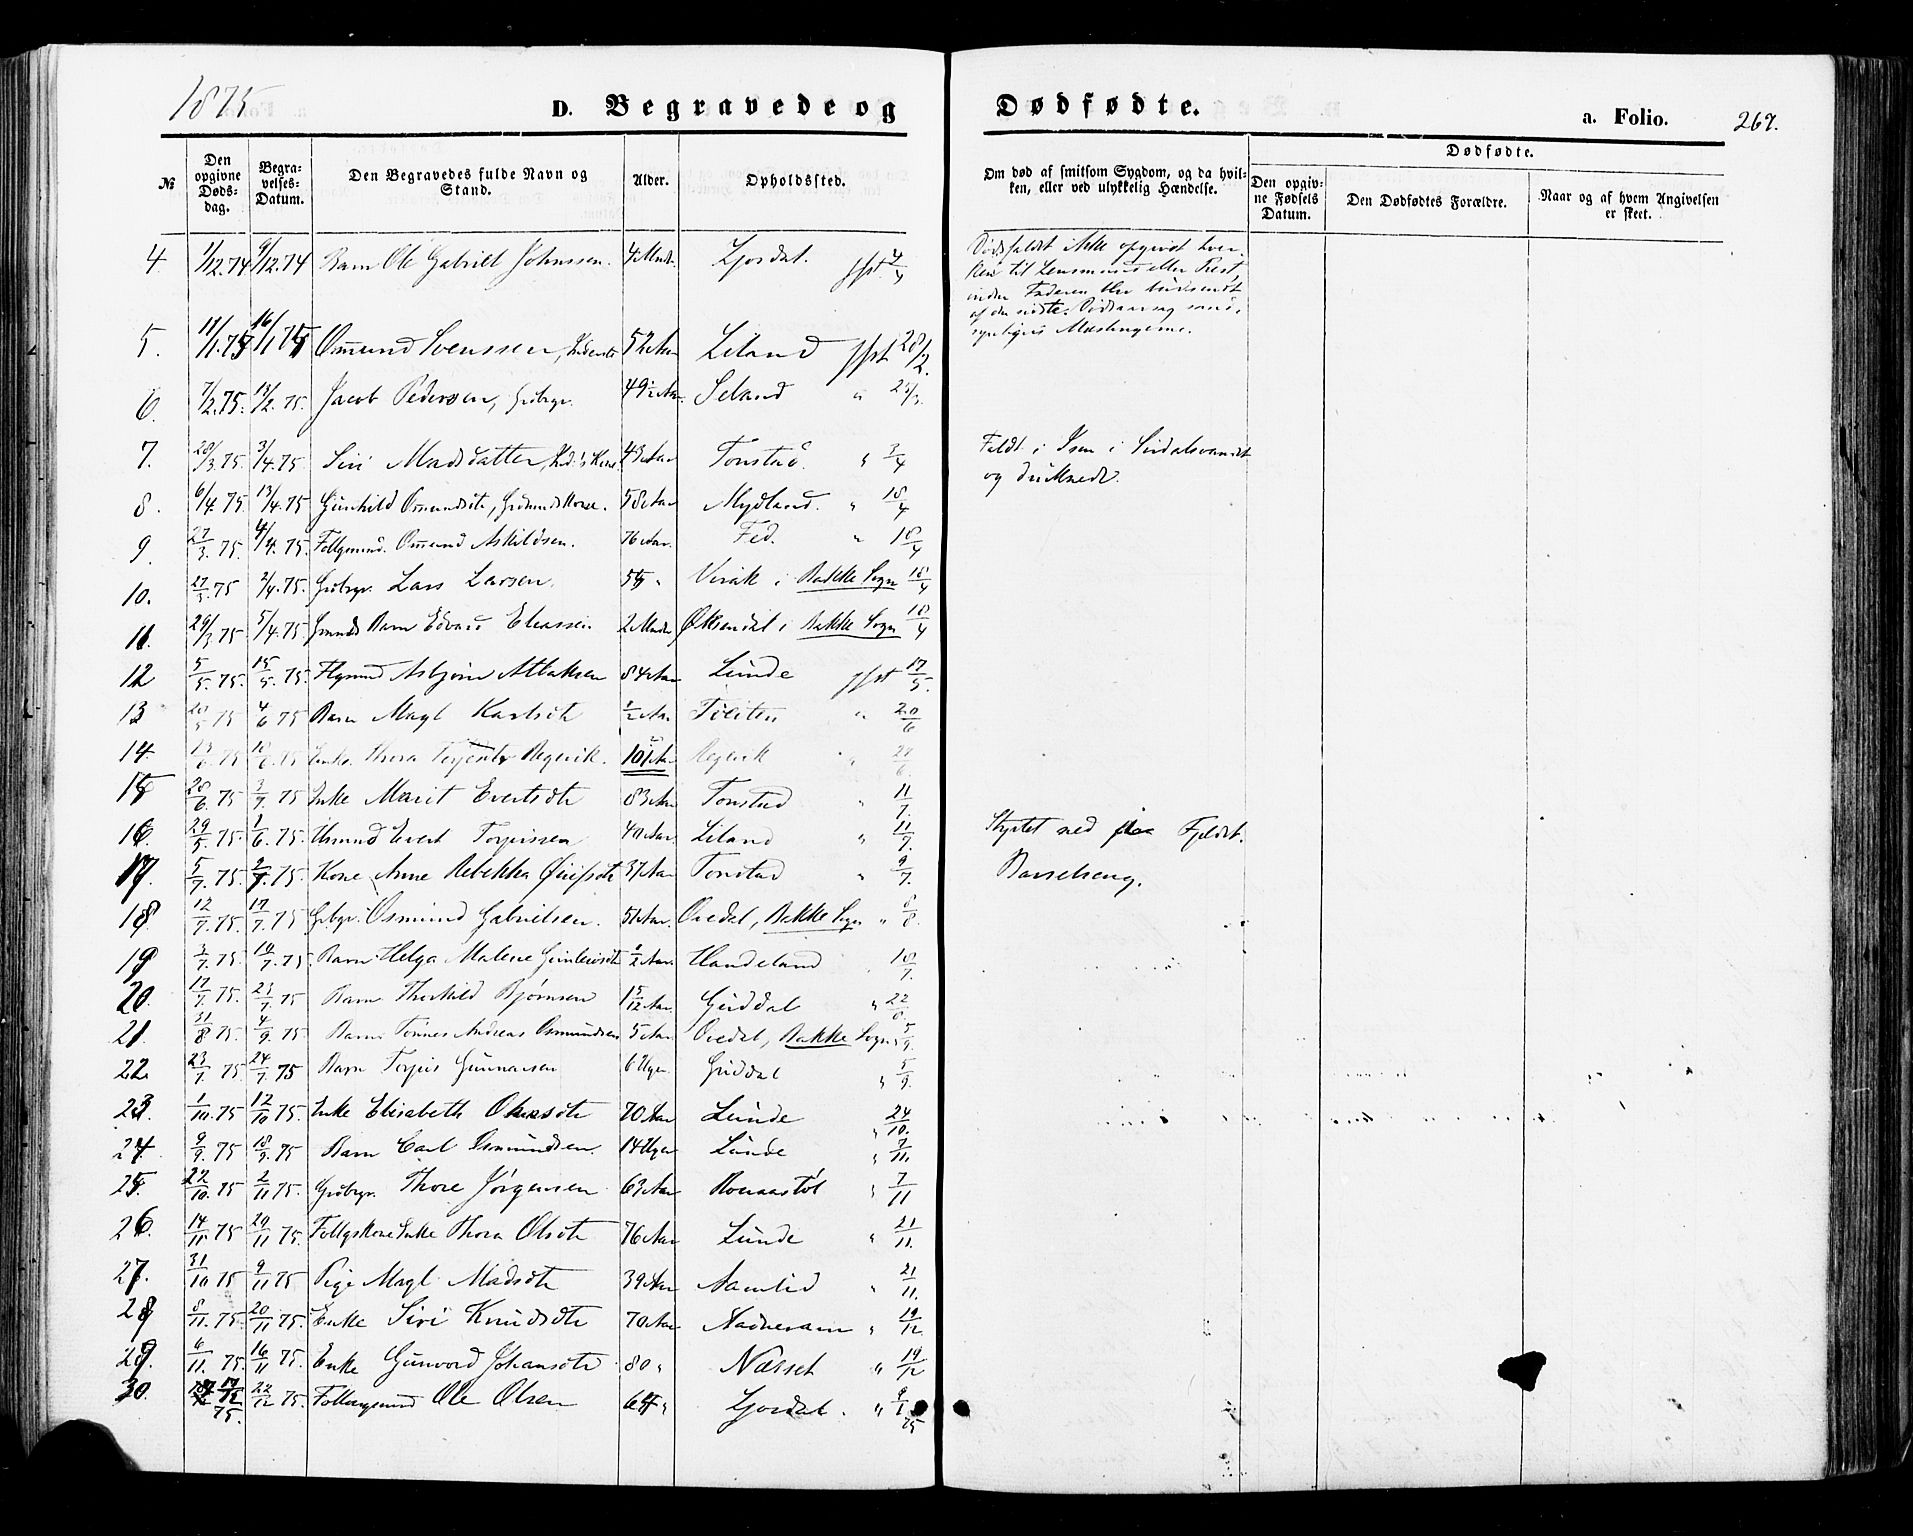 1875
D. Begravede og
Dødfødte.
a. Folio. 267.
№
Den opgivne Døds-dag.
Begra-velses-Datum.
Den Begravedes fulde Navn og Stand.
Alder.
Opholdssted.
Om død af smitsom Sygdom, og da hvil-ken, eller ved ulykkelig Hændelse.
Dødfødte.
Den opgiv-ne Fødsels Datum.
Den Dødfødtes Forældre.
Naar og af hvem Angivelsen er skeet.
4 1/12.74 9/12.74 Barn Ole Gabriel Johnssen. 4 Mndr. Ljosdal.
Dødsfaldet ikke opgivet hver-
ken til Lensmand eller Præst,
5. 11/1.75 16/1.75 Osmund Svenssen, 52 Aar Liland 28/2.
6. 7/2.75. 13/2.75. Jacob Pedersen, Grdbgr. 49 1/2 Aar. Seland " 25/3.
7. 28/3.75. 3/4.75 Siri Madsdatter, 43 Aar Tonstad. " 3/4 Faldt i Isen i Sirdalsvandet
og druknede.
8. 6/4.75 13/4.75 Gunhild Osmundsdtr, Grdmds Kone. 58 Aar Mydland. " 18/4
9. 27/3.75. 4/4.75. Follgmand. Osmund Askildsen. 76 Aar. Fed. " 18/4
10. 27/3.75 2/4.75. Grdbgr. Lars Larsen. Virak i Bakke Sogn 18/4
11. 29/3.75 5/4.75. Grmds Barn Edvard Eliassen 2 Mndr Øksendal i Bakke Sogn 18/4
12 5/5.75. 15/5.75. Flgmnd Asbjørn Atlaksen 84 Aar Lunde 17/5.
13 20/5 75 4/6 75 Barn Magl Karlsdtr 1/2 Aar " 20/6
14. 75 10/6.75 Enke. Thora 101 Aar "
15 28/6.75 3/7.75 Enke Marit Evertsdtr 83 Aar Tonstad " 11/7.
16. 29/5.75. 1/6.75. Evert Torjussen 40 Aar. Liland " 11/7. Styrtet ned fra Fjeldet.
17. 5/7.75. 9/7.75. Kone Anne Rebekka 37 Aar Tonstad " 9/7. Barselseng.
18. 12/7.75. 17/7.75 Grbgr. Osmund Gabrielsen. 51 Aar. Ovedal, Bakke Sogn " 8/8.
19 3/7.75. 10/7.75. Barn Helga Malene Gunleivsdtr 1/2 Aar. Handeland 18/7.
20. 17/7.75. 23/7.75 Barn Thorkild Bjørnsen 1 5/12 Aar Guddal " 22/8.
21. 31/8.75. 4/9.75 Barn Tønnes Andreas Osmundsen 5 Aar Ovedal, Bakke Sogn 5/9.
22 23/7.75. 24/7.75 Barn Torjus Gunnarsen 6 Uger. Guddal " 5/9.
23. 1/10.75 12/10 75. Enke Elisabeth Olsdtr 70 Aar Lunde " 24/10.
24. 9/9.75 18/9.75 Barn Carl Osmundsen. 14 Uger Lunde " 7/11.
25. 22/10.75 2/11 75. Grdbgr. Thore Jørgensen 63 Aar " 7/11
26. 14/11.75 20/11 75. Follgskone Enke Thora Olsdtr 76 Aar Lunde " 21/11.
27. 31/10 75 9/11 75 Pige Magl. Madsdtr 39 Aar " 21/11.
28 8/11.75. 20/11 75. Enke Siri Knudsdtr 70 Aar Hadneram " 19/12
29. 6/11.75. 16/11 75. Enke Gunvord Johansdtr 80 " Næsset " 19/12
30. 17/12 75. 22/12 75. Ole Olsen Ljosdal. "